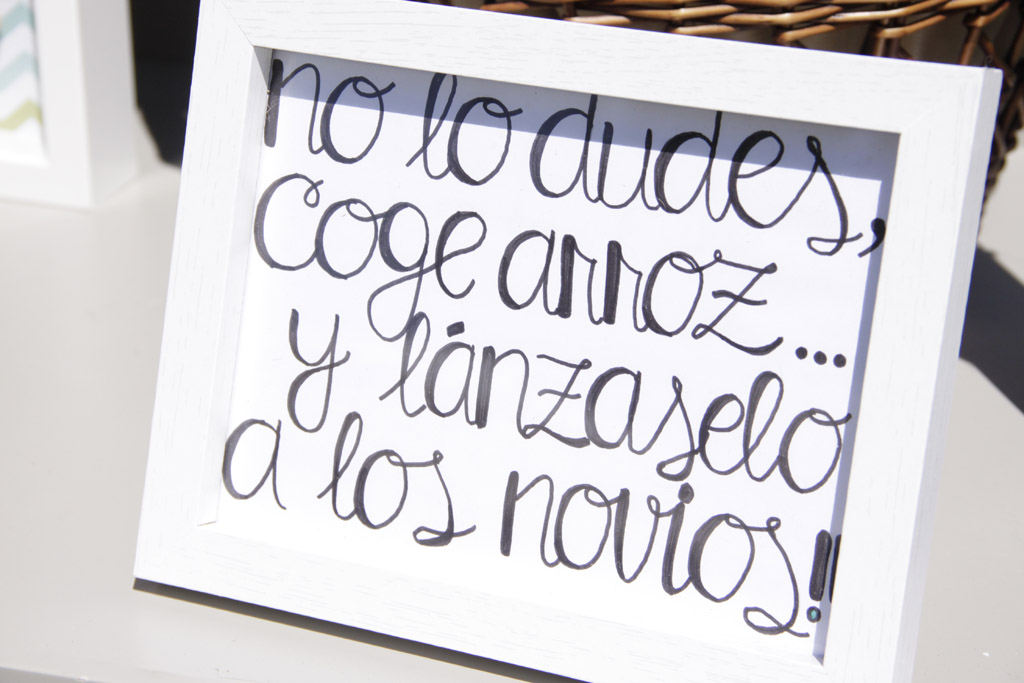 no lo dudes,
coge arroz...
y lánzaselo
a los novios!!